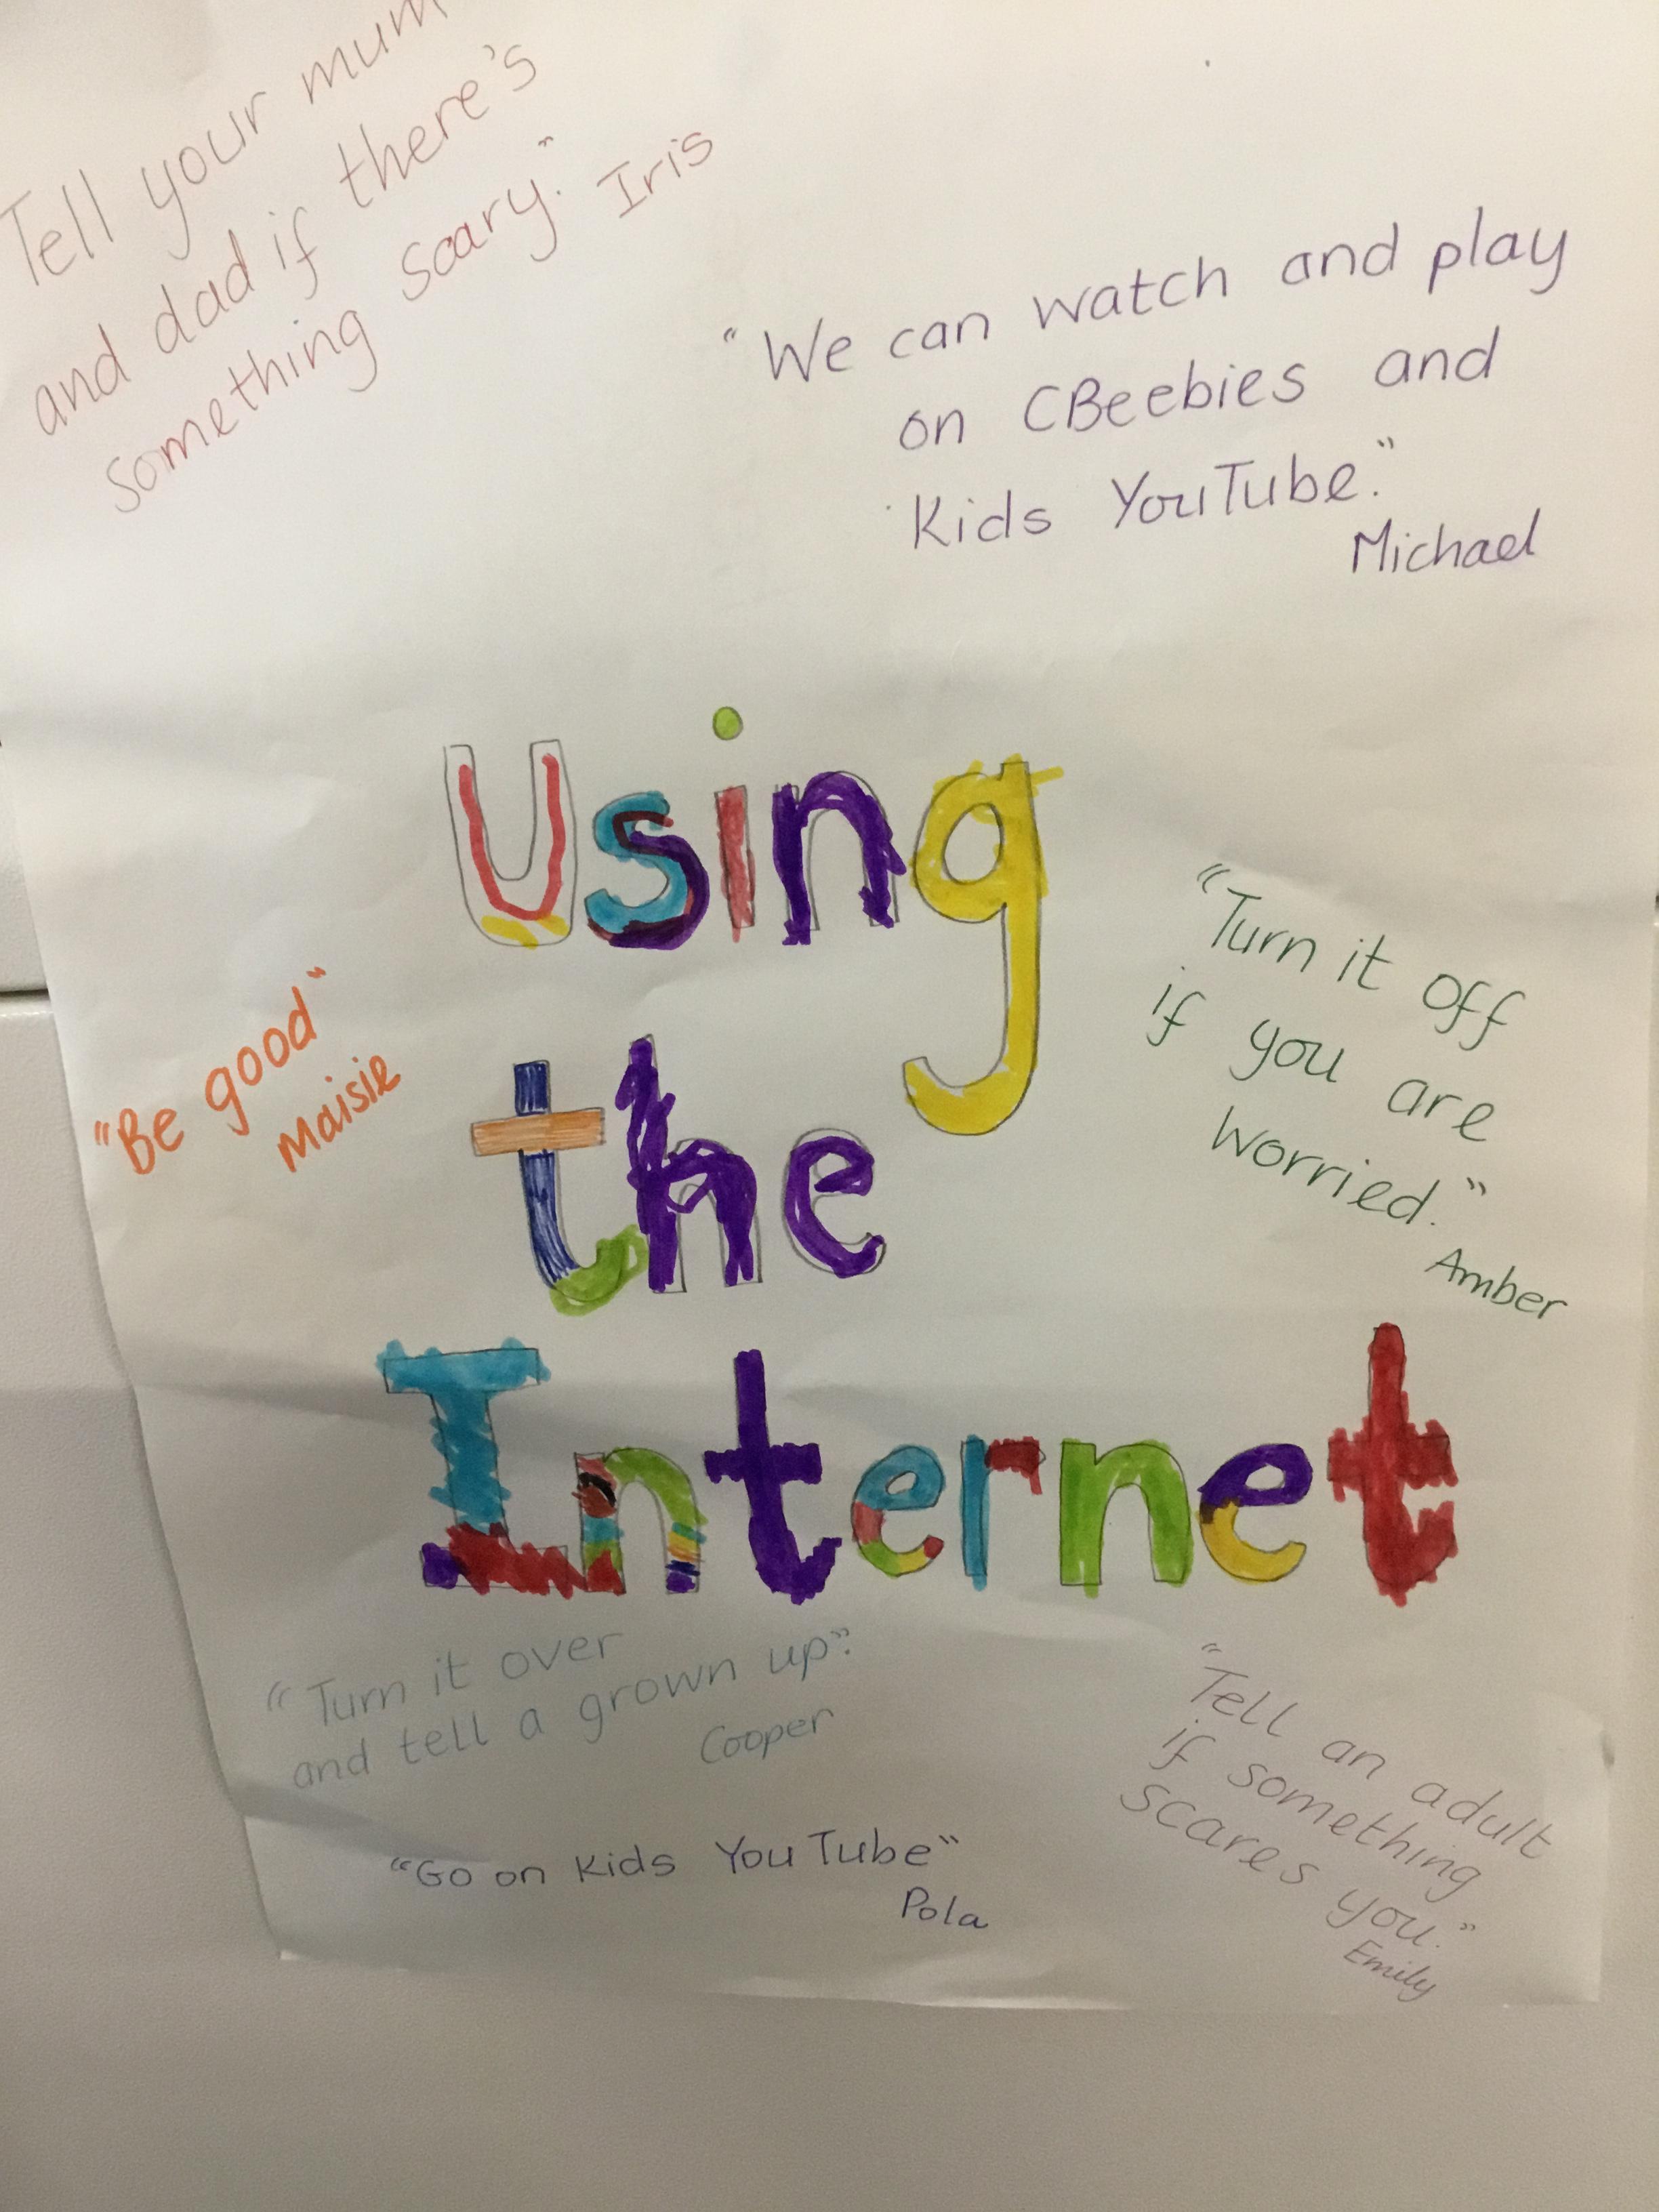 Tell your mum
and dad if there's
something scary." Iris
"We can watch and play
on CBeebies and
Kids YouTube."
Michael
Using
the
Internet
"Be good"
Maisie
"Turn it off
if you are
worried."
Amber
"Turn it over
and tell a grown up".
Cooper
"Go on Kids YouTube"
Pola
"Tell an adult
if something
scares you."
Emily